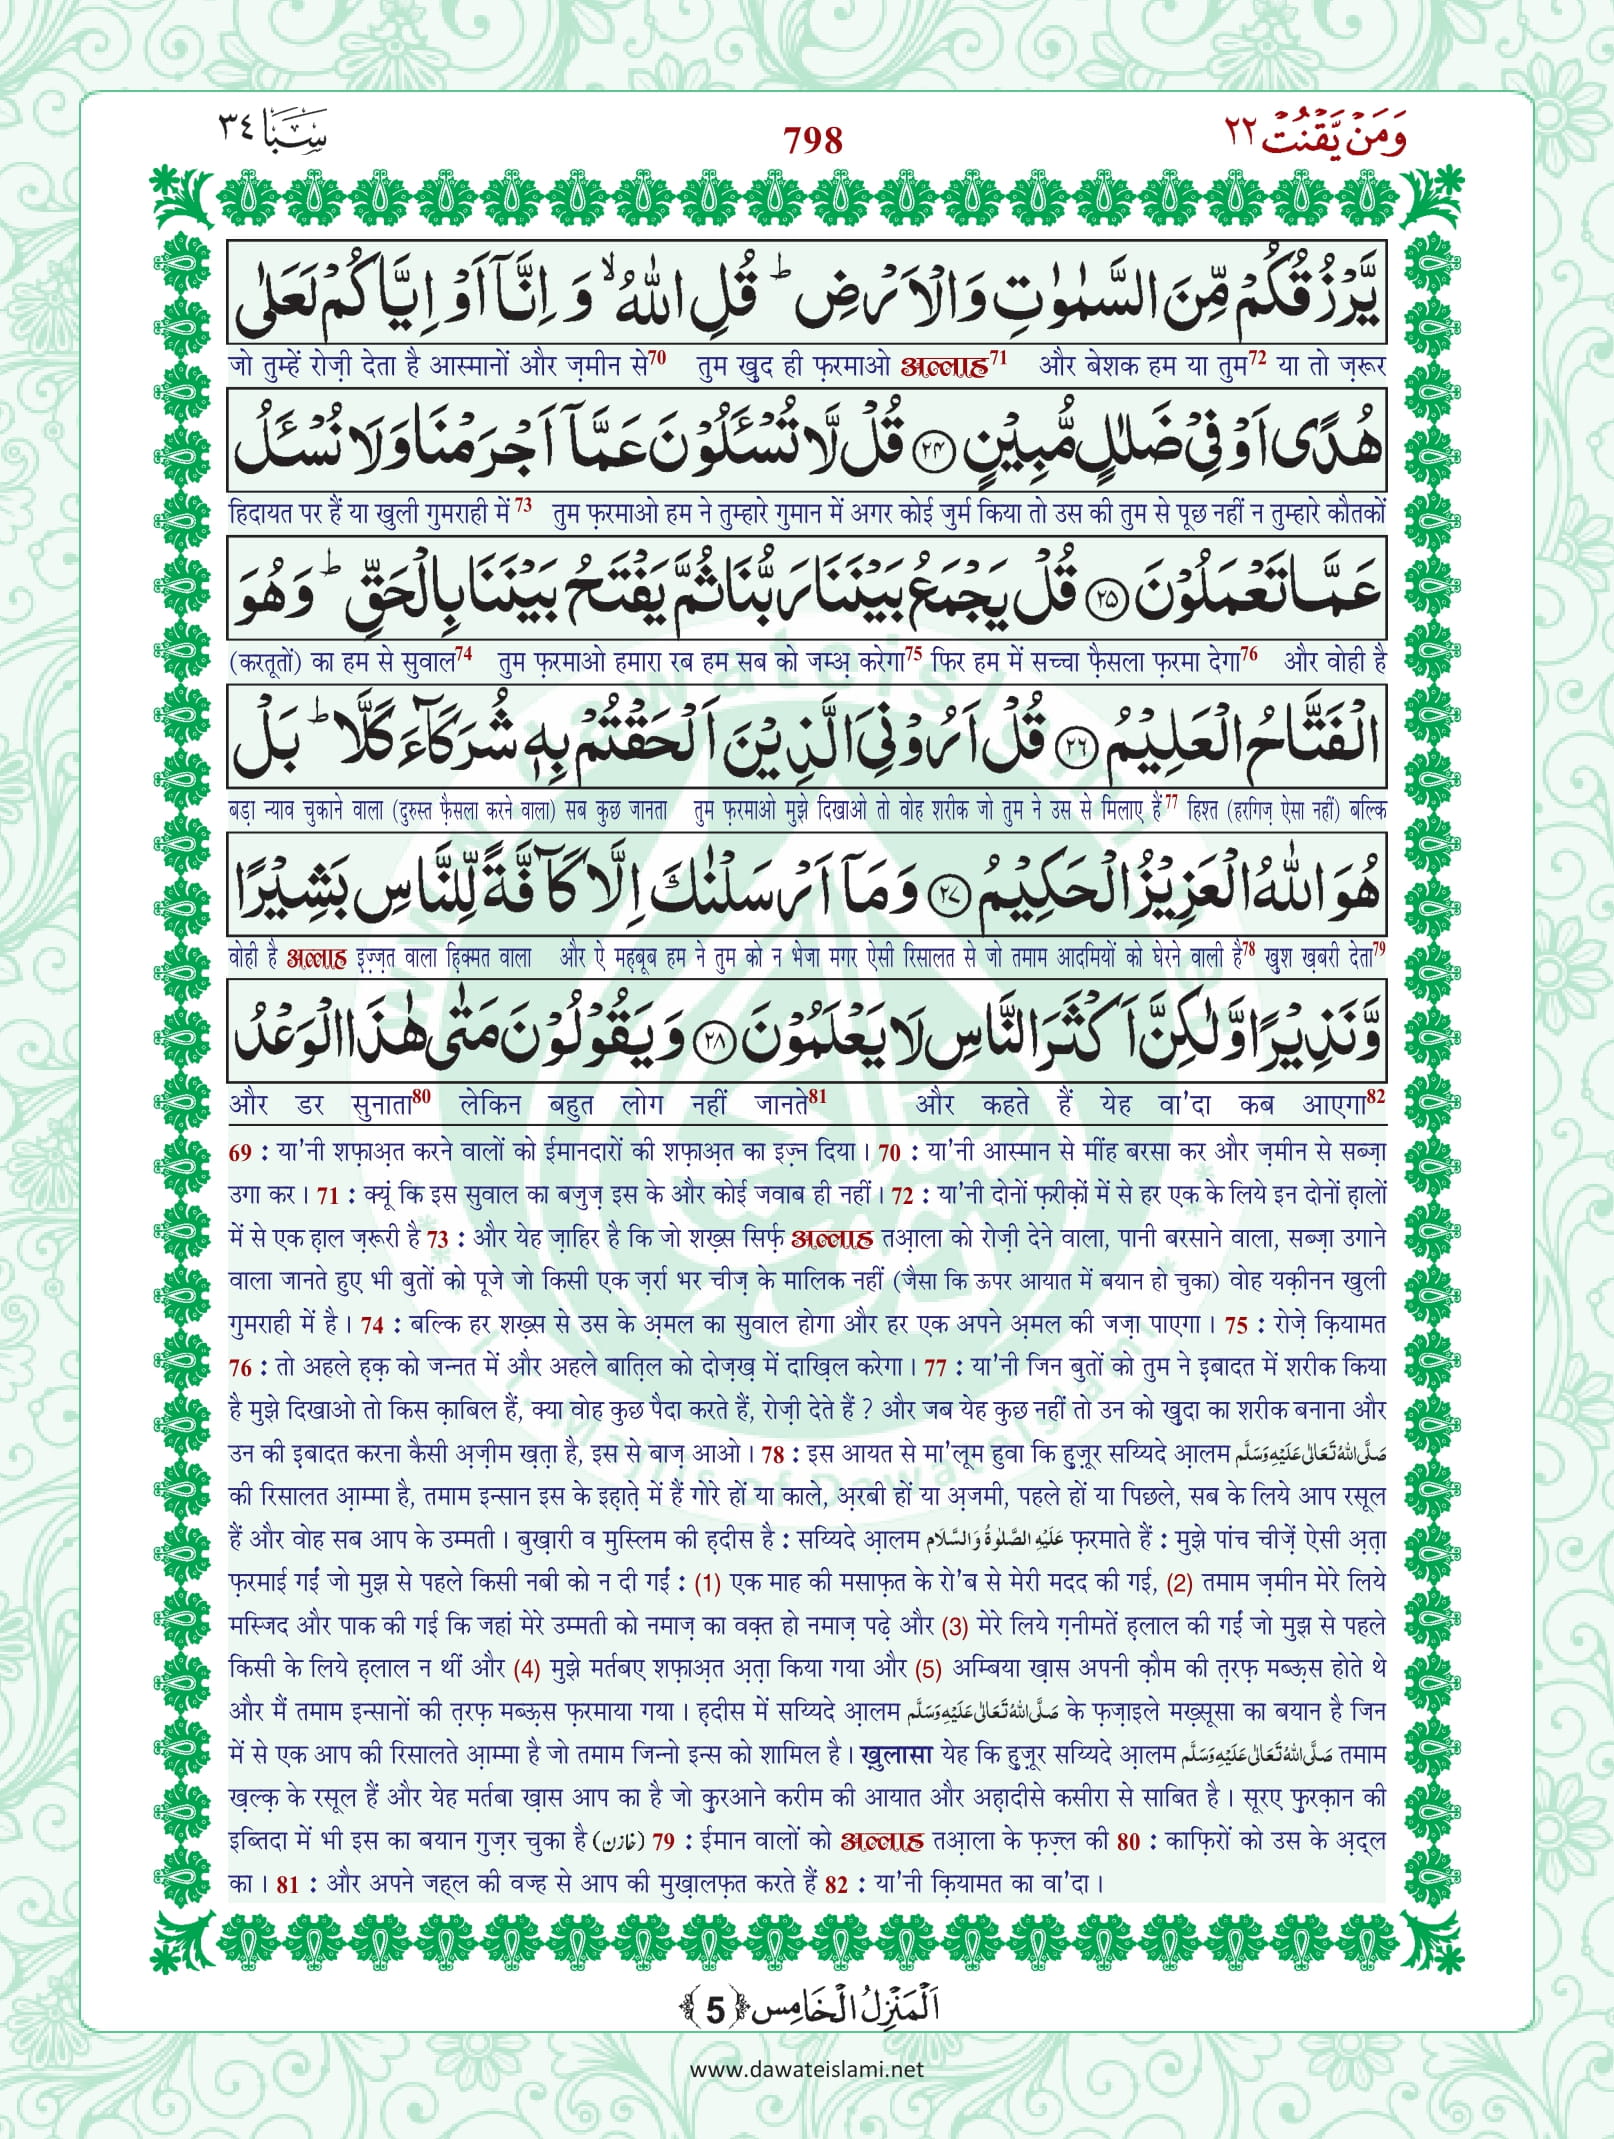 وَمَنْ يَّقْنُتْ ٢٢
798
سَبَا ٣٤
يَّرْزُقُكُمْ مِّنَ السَّمٰوٰتِ وَالْاَرْضِ ؕ قُلِ اللّٰهُ ۙ وَ اِنَّاۤ اَوْ اِيَّاكُمْ لَعَلٰى
जो तुम्हें रोज़ी देता है आस्मानों और ज़मीन से70 तुम खुद ही फ़रमाओ अल्लाह71 और बेशक हम या तुम72 या तो ज़रूर
هُدًى اَوْ فِیْ ضَلٰلٍ مُّبِیْنٍ ﴿۲۴﴾ قُلْ لَّا تُسْـَٔلُوْنَ عَمَّاۤ اَجْرَمْنَا وَلَا نُسْـَٔلُ
हिदायत पर हैं या खुली गुमराही में73 तुम फ़रमाओ हम ने तुम्हारे गुमान में अगर कोई जुर्म किया तो उस की तुम से पूछ नहीं न तुम्हारे कौतकों
عَمَّا تَعْمَلُوْنَ ﴿۲۵﴾ قُلْ یَجْمَعُ بَیْنَنَا رَبُّنَا ثُمَّ یَفْتَحُ بَیْنَنَا بِالْحَقِّ ؕ وَهُوَ
(करतूतों) का हम से सुवाल74 तुम फ़रमाओ हमारा रब हम सब को जम्अ़ करेगा75 फिर हम में सच्चा फ़ैसला फ़रमा देगा76 और वोही है
الْفَتَّاحُ الْعَلِیْمُ ﴿۲۶﴾ قُلْ اَرُوْنِیَ الَّذِیْنَ اَلْحَقْتُمْ بِهٖ شُرَكَآءَ كَلَّا ؕ بَلْ
बड़ा न्याव चुकाने वाला (दुरुस्त फ़ैसला करने वाला) सब कुछ जानता तुम फ़रमाओ मुझे दिखाओ तो वोह शरीक जो तुम ने उस से मिलाए हैं77 हिश्त (हरगिज़ ऐसा नहीं) बल्कि
هُوَ اللّٰهُ الْعَزِیْزُ الْحَكِیْمُ ﴿۲۷﴾ وَمَاۤ اَرْسَلْنٰكَ اِلَّا كَآفَّةً لِّلنَّاسِ بَشِیْرًا
वोही है अल्लाह इज़्ज़त वाला हिक्मत वाला और ऐ महबूब हम ने तुम को न भेजा मगर ऐसी रिसालत से जो तमाम आदमियों को घेरने वाली है78 खुश ख़बरी देता79
وَّنَذِیْرًا وَّلٰكِنَّ اَكْثَرَ النَّاسِ لَا یَعْلَمُوْنَ ﴿۲۸﴾ وَیَقُوْلُوْنَ مَتٰى هٰذَا الْوَعْدُ
और डर सुनाता80 लेकिन बहुत लोग नहीं जानते81 और कहते हैं येह वा'दा कब आएगा82
69 : या'नी शफ़ाअ़त करने वालों को ईमानदारों की शफ़ाअ़त का इज़्न दिया। 70 : या'नी आस्मान से मींह बरसा कर और ज़मीन से सब्ज़ा
उगा कर। 71 : क्यूं कि इस सुवाल का बजुज़ इस के और कोई जवाब ही नहीं। 72 : या'नी दोनों फ़रीक़ों में से हर एक के लिये इन दोनों ह़ालों
में से एक ह़ाल ज़रूरी है 73 : और येह ज़ाहिर है कि जो शख़्स सिर्फ़ अल्लाह तआ़ला को रोज़ी देने वाला, पानी बरसाने वाला, सब्ज़ा उगाने
वाला जानते हुए भी बुतों को पूजे जो किसी एक ज़र्रा भर चीज़ के मालिक नहीं (जैसा कि ऊपर आयात में बयान हो चुका) वोह यक़ीनन खुली
गुमराही में है। 74 : बल्कि हर शख़्स से उस के अ़मल का सुवाल होगा और हर एक अपने अ़मल की जज़ा पाएगा। 75 : रोज़े क़ियामत
76 : तो अहले ह़क़ को जन्नत में और अहले बात़िल को दोज़ख़ में दाख़िल करेगा। 77 : या'नी जिन बुतों को तुम ने इ़बादत में शरीक किया
है मुझे दिखाओ तो किस क़ाबिल हैं, क्या वोह कुछ पैदा करते हैं, रोज़ी देते हैं ? और जब येह कुछ नहीं तो उन को खुदा का शरीक बनाना और
उन की इ़बादत करना कैसी अज़ीम ख़त़ा है, इस से बाज़ आओ। 78 : इस आयत से मा'लूम हुवा कि हुज़ूर सय्यिदे आ़लम صَلَّى اللهُ تَعَالٰى عَلَيْهِ وَسَلَّم
की रिसालत आ़म्मा है, तमाम इन्सान इस के इह़ात़े में हैं गोरे हों या काले, अ़रबी हों या अ़जमी, पहले हों या पिछले, सब के लिये आप रसूल
हैं और वोह सब आप के उम्मती। बुख़ारी व मुस्लिम की ह़दीस है : सय्यिदे आ़लम عَلَيْهِ الصَّلٰوةُ وَالسَّلَام फ़रमाते हैं : मुझे पांच चीज़ें ऐसी अ़त़ा
फ़रमाई गईं जो मुझ से पहले किसी नबी को न दी गईं : (1) एक माह की मसाफ़त के रो'ब से मेरी मदद की गई, (2) तमाम ज़मीन मेरे लिये
मस्जिद और पाक की गई कि जहां मेरे उम्मती को नमाज़ का वक़्त हो नमाज़ पढ़े और (3) मेरे लिये ग़नीमतें ह़लाल की गईं जो मुझ से पहले
किसी के लिये ह़लाल न थीं और (4) मुझे मर्तबए शफ़ाअ़त अ़त़ा किया गया और (5) अम्बिया ख़ास अपनी क़ौम की त़रफ़ मब्ऊ़स होते थे
और मैं तमाम इन्सानों की त़रफ़ मब्ऊ़स फ़रमाया गया। ह़दीस में सय्यिदे आ़लम صَلَّى اللهُ تَعَالٰى عَلَيْهِ وَسَلَّم के फ़ज़ाइले मख़्सूसा का बयान है जिन
में से एक आप की रिसालते आ़म्मा है जो तमाम जिन्नो इन्स को शामिल है। ख़ुलासा येह कि हुज़ूर सय्यिदे आ़लम صَلَّى اللهُ تَعَالٰى عَلَيْهِ وَسَلَّم तमाम
ख़ल्क़ के रसूल हैं और येह मर्तबा ख़ास आप का है जो कुरआने करीम की आयात और अह़ादीसे कसीरा से साबित है। सूरए फुरक़ान की
इब्तिदा में भी इस का बयान गुज़र चुका है (خازن) 79 : ईमान वालों को अल्लाह तआ़ला के फ़ज़्ल की 80 : काफ़िरों को उस के अ़द्ल
का। 81 : और अपने जह्ल की वज्ह से आप की मुख़ालफ़त करते हैं 82 : या'नी क़ियामत का वा'दा।
اَلْمَنْزِلُ الْخَامِس ﴿5﴾
www.dawateislami.net